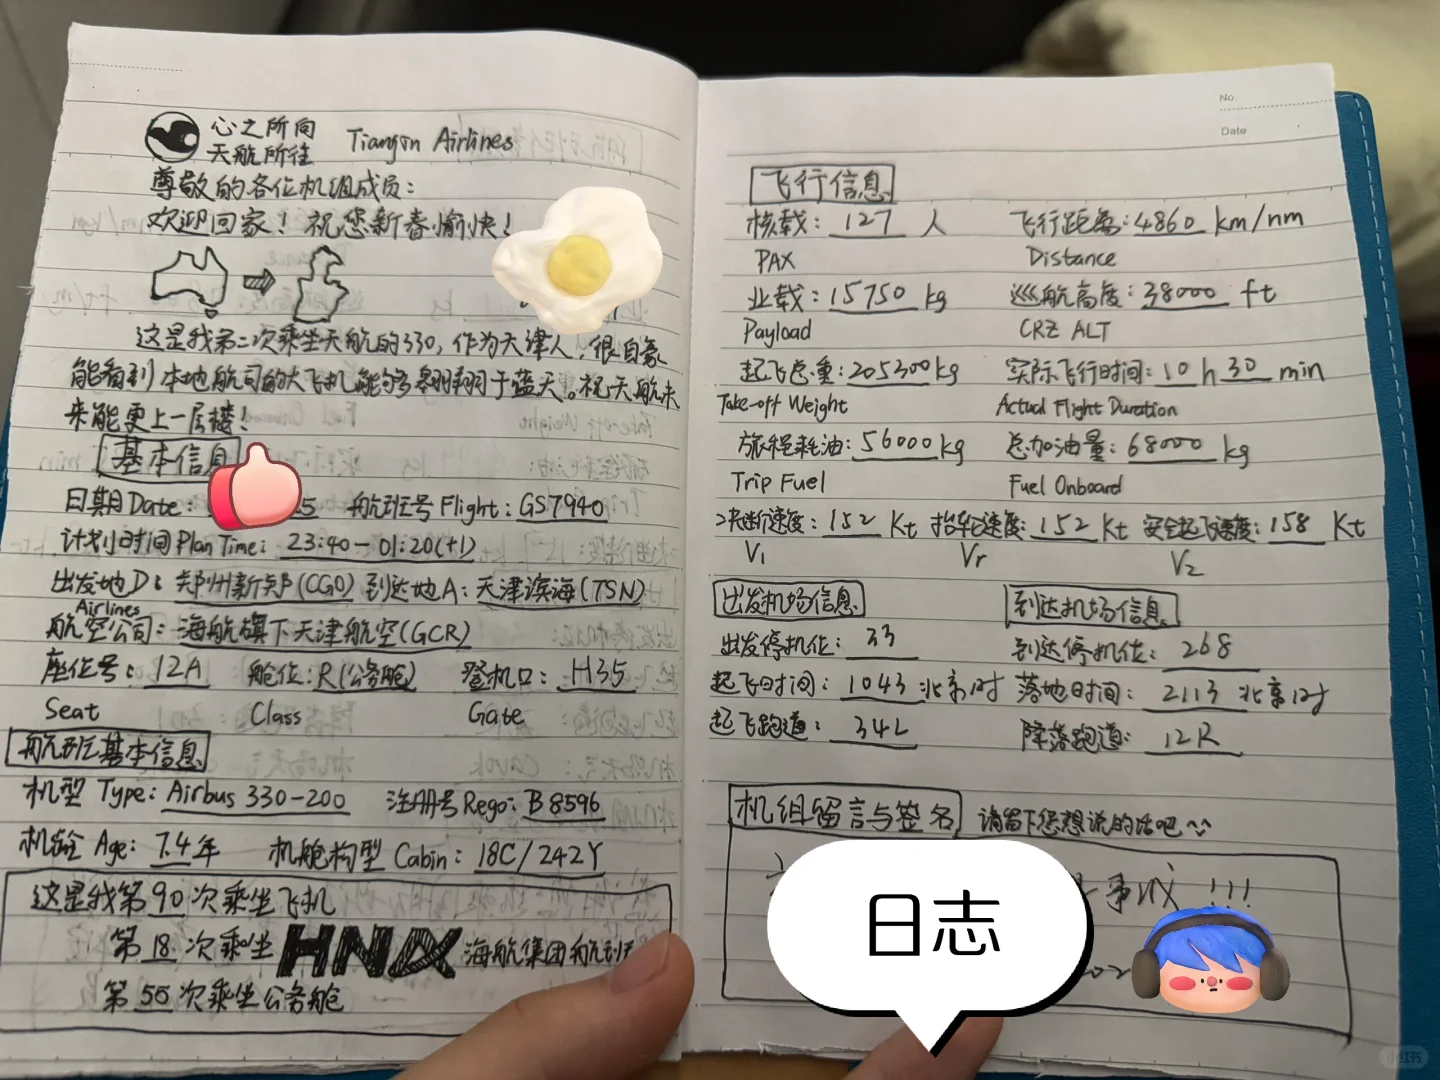 心之所向
天航所往
Tianjin Airlines
尊敬的各位机组成员：
欢迎回家！祝您新春愉快！
这是我第二次乘坐天航的330，作为天津人，很自豪
能看到本地航司的大飞机能够翱翔于蓝天。祝天航未
来能更上一层楼！
基本信息
日期Date： 5 航班号Flight：GS7940
计划时间Plan Time：23:40－01:20(+1)
出发地D：郑州新郑(CGO) 到达地A：天津滨海(TSN)
Airlines
航空公司：海航旗下天津航空(GCR)
座位号：12A 舱位：R(公务舱) 登机口：H35
Seat Class Gate
航班基本信息
机型 Type：Airbus 330-200 注册号Rego：B8596
机龄 Age：7.4年 机舱构型 Cabin：18C/242Y
这是我第90次乘坐飞机
第18次乘坐HNA海航集团航班
第55次乘坐公务舱
No.
Date
飞行信息
核载：127人 飞行距离：4860 km/nm
PAX Distance
业载：15750 kg 巡航高度：38000 ft
Payload CRZ ALT
起飞总重：205300kg 实际飞行时间：10 h 30 min
Take-off Weight Actual Flight Duration
旅程耗油：56000kg 总加油量：68000 kg
Trip Fuel Fuel Onboard
决断速度：152 Kt 抬轮速度：152 Kt 安全起飞速度：158 Kt
V1 Vr V2
出发机场信息 到达机场信息
出发停机位：33 到达停机位：268
起飞时间：1043 北京时 落地时间：2113 北京时
起飞跑道：34L 降落跑道：12R
机组留言与签名 请留下您想说的话吧~~
事成！！！
日志
小红书